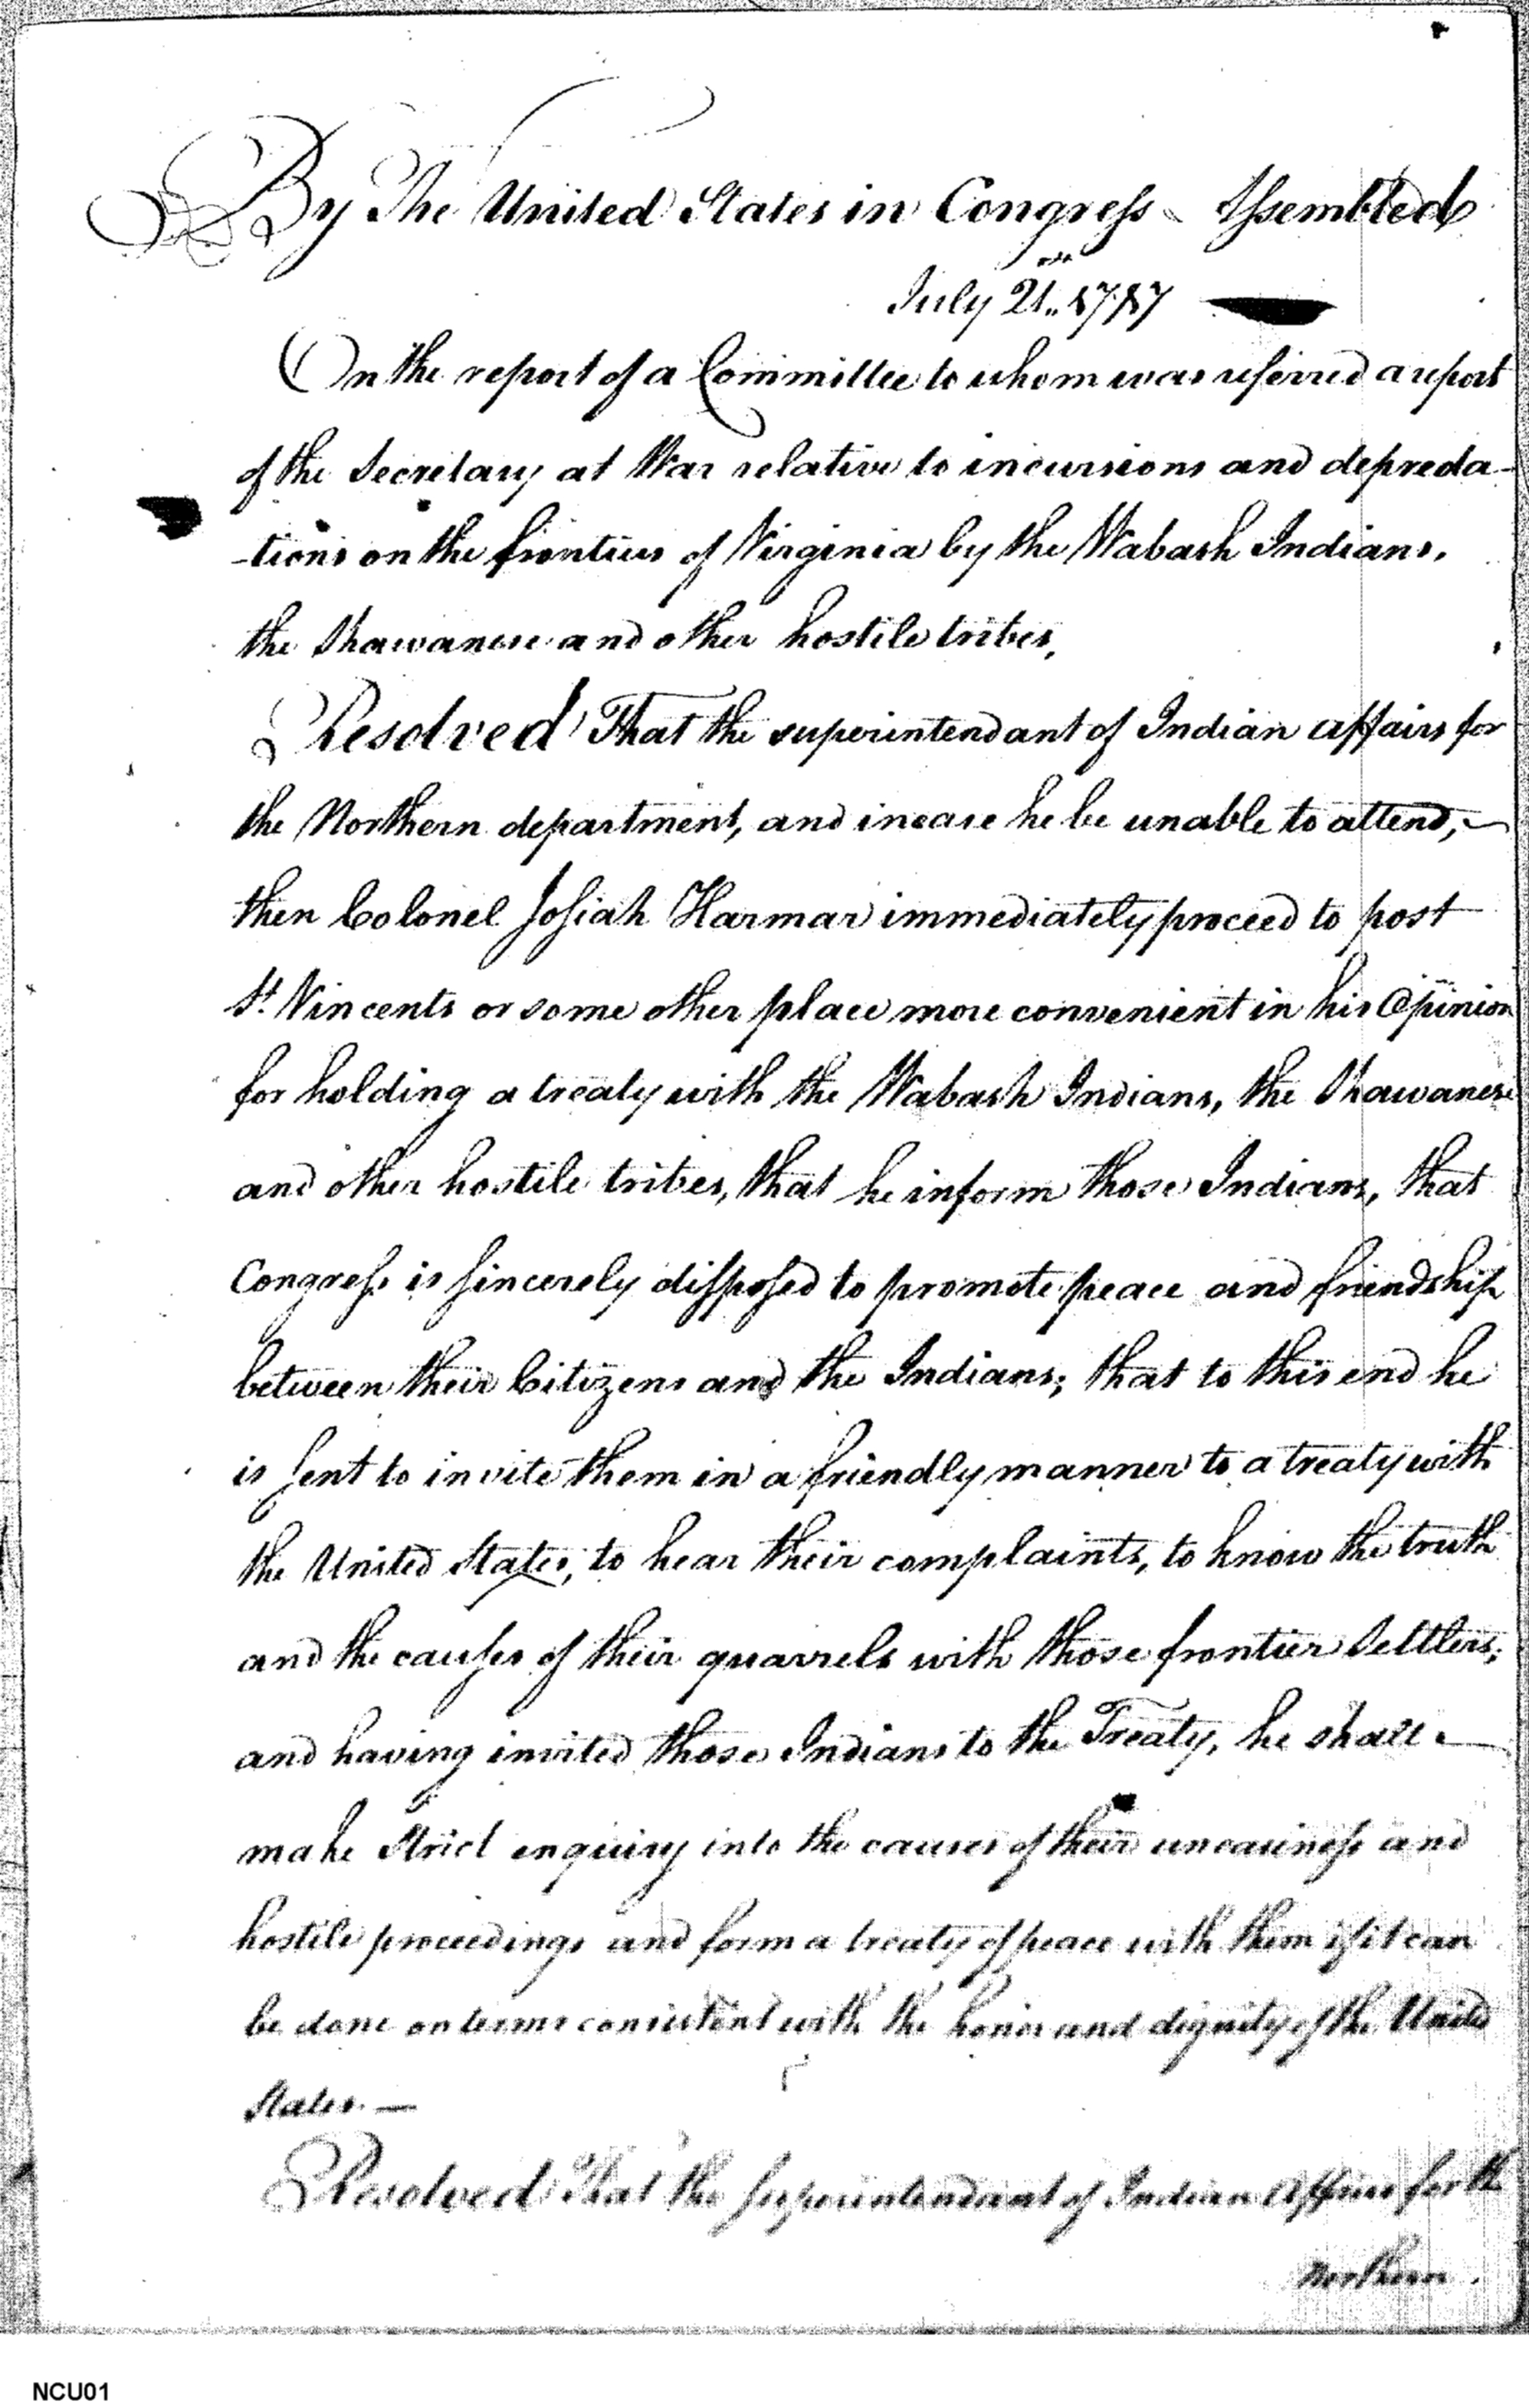 By The United States in Congress Assembled
July 21st 1787
On the report of a Committee to whom was referred a report
of the Secretary at War relative to incursions and depreda-
-tions on the frontiers of Virginia by the Wabash Indians,
the Shawanese and other hostile tribes,
Resolved That the superintendant of Indian affairs for
the Northern department, and incase he be unable to attend,
then Colonel Josiah Harmar immediately proceed to post
St. Vincents or some other place more convenient in his Opinion
for holding a treaty with the Wabash Indians, the Shawanese
and other hostile tribes, that he inform those Indians, that
Congress is sincerely disposed to promote peace and friendship
between their Citizens and the Indians; that to this end he
is sent to invite them in a friendly manner to a treaty with
the United States, to hear their complaints, to know the truth
and the causes of their quarrels with those frontier Settlers;
and having invited those Indians to the Treaty, he shall
make Strict enquiry into the causes of their uneasiness and
hostile proceedings and form a treaty of peace with them if it can
be done on terms consistent with the honor and dignity of the United
States. —
Resolved That the Superintendant of Indian Affairs for the
Northern
NCU01